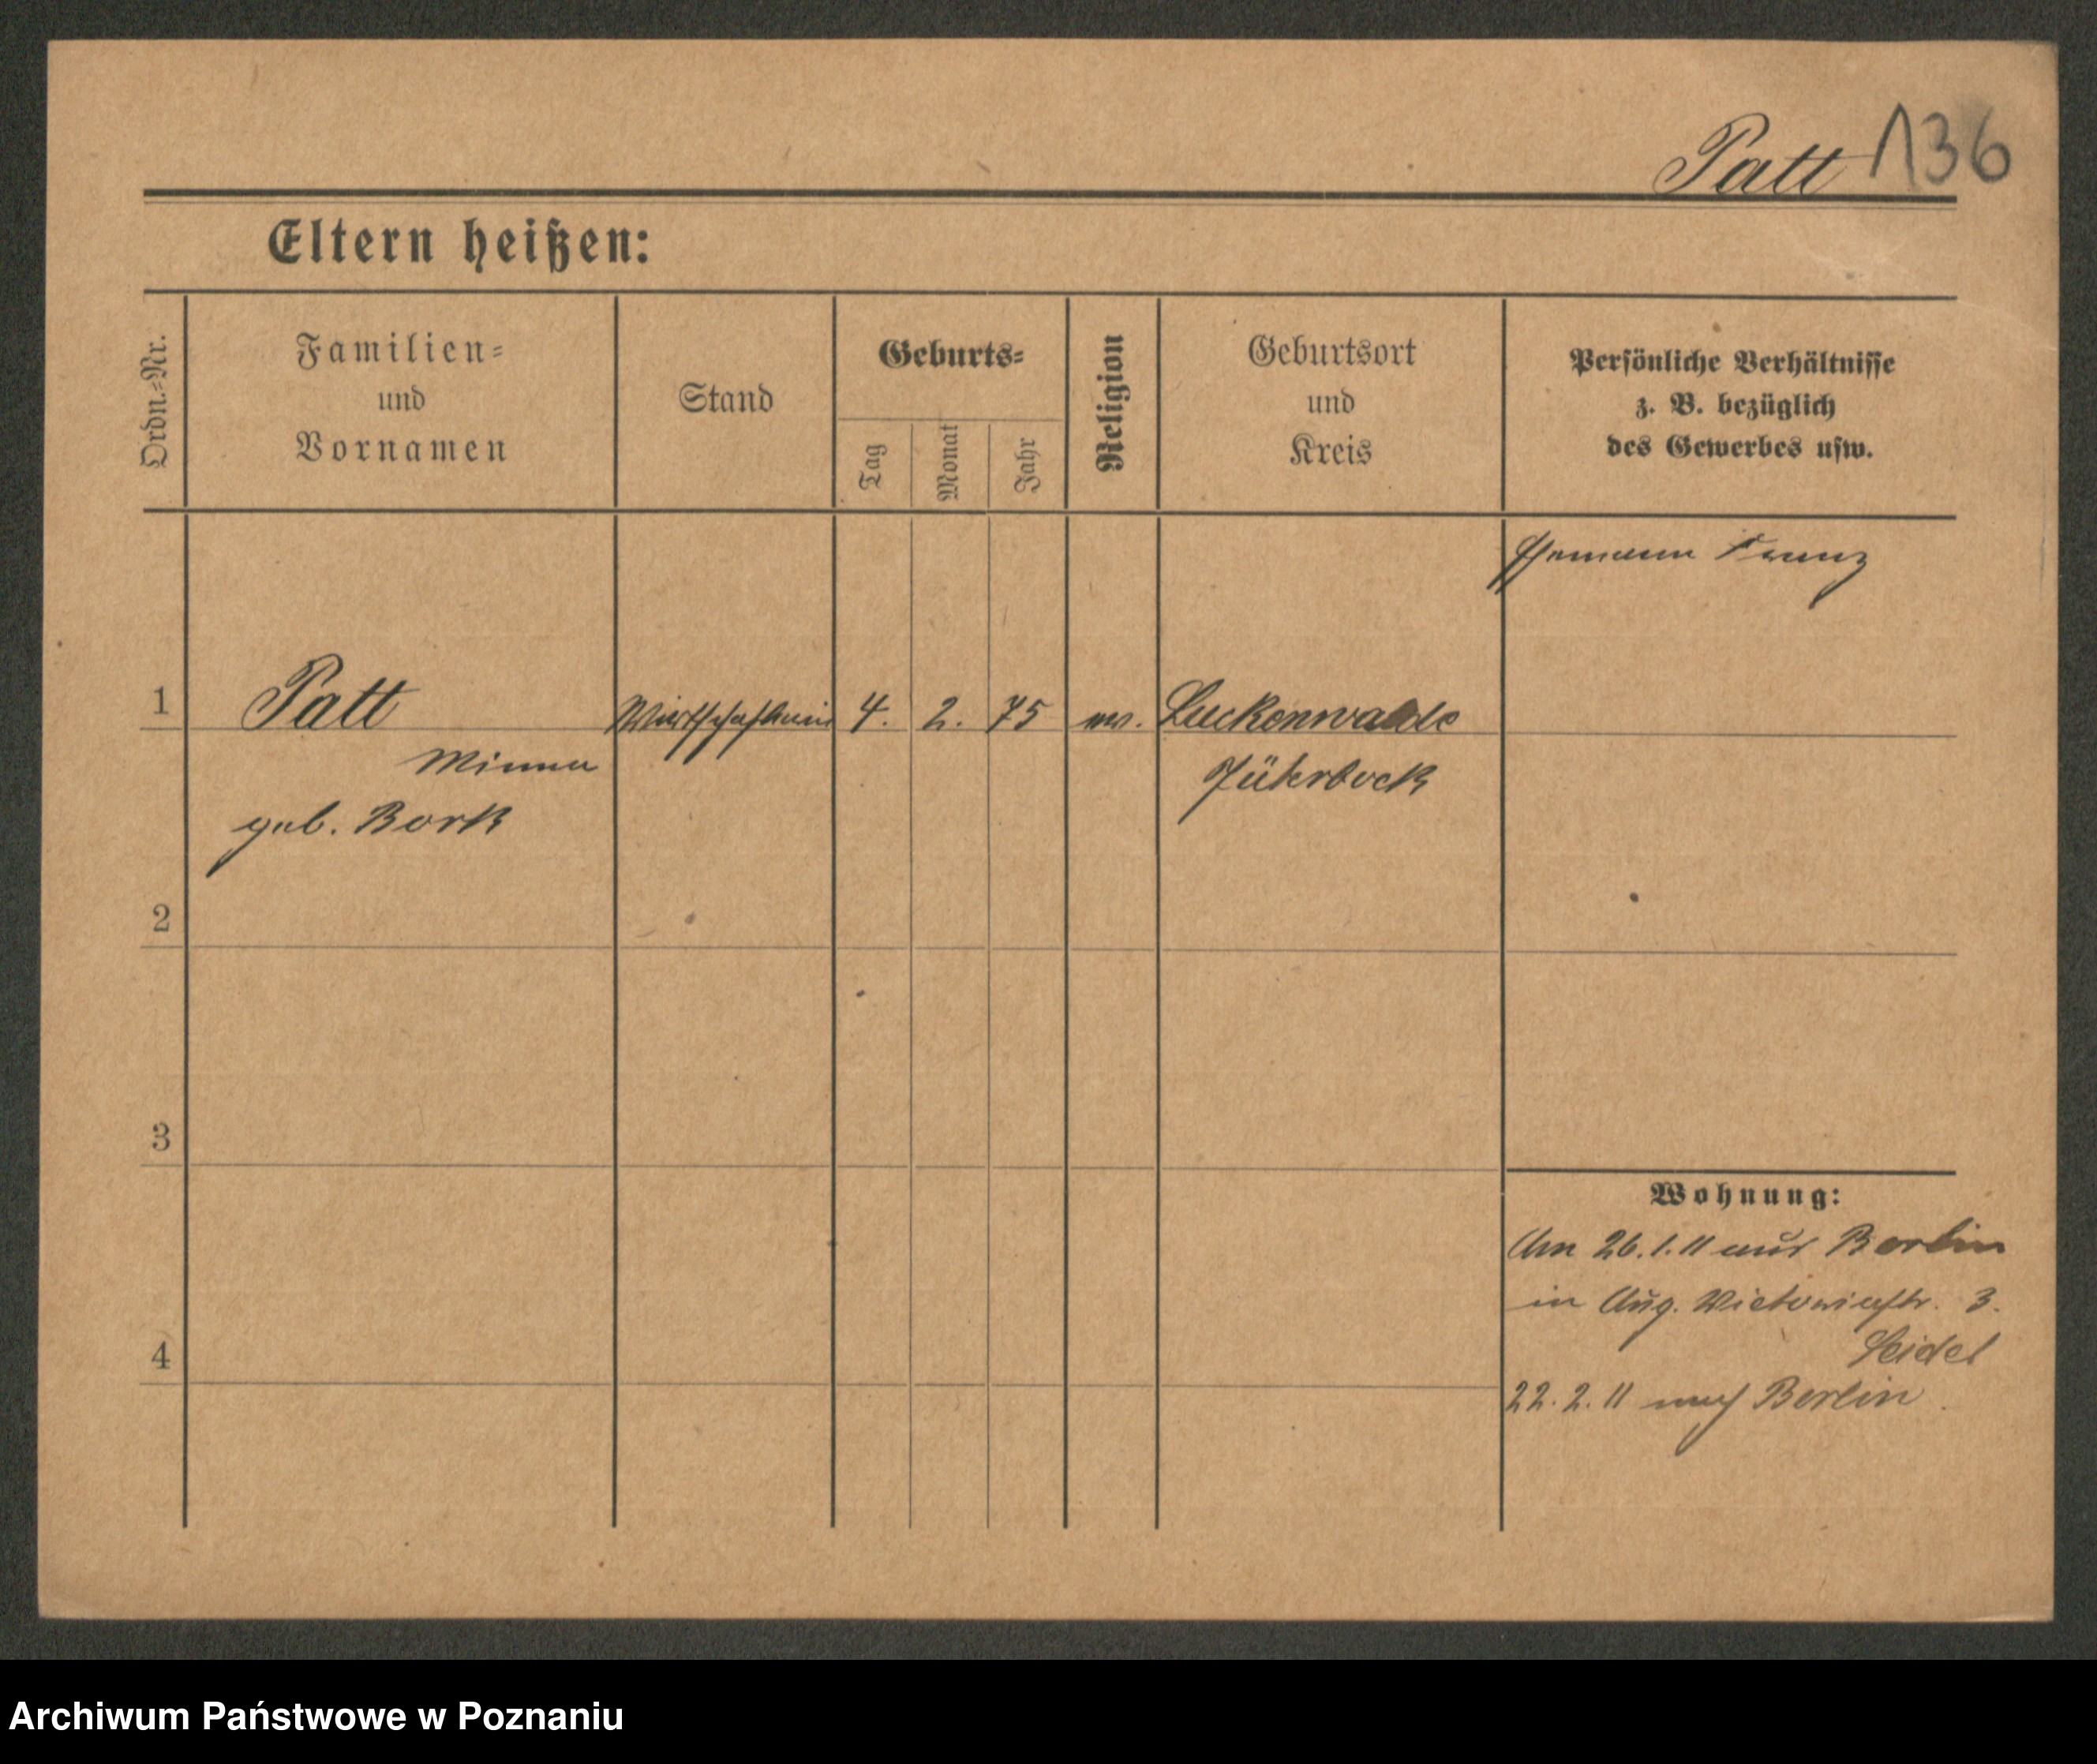 Patt 136
Eltern heißen:
Ordn.=Nr.
Familien=
und
Vornamen
Stand
Geburts=
Tag
Monat
Jahr
Religion
Geburtsort
und
Kreis
Persönliche Verhältnisse
z. B. bezüglich
des Gewerbes usw.
Ehemann Franz
1 Patt 4. 2. 75 ev. Luckenwalde
Minna Jüterbock
geb. Bork
2
3
Wohnung:
Am 26.1.11 aus Berlin
in Aug. Victoriastr. 3.
4 Seidel
22.2.11 nach Berlin.
Archiwum Państwowe w Poznaniu